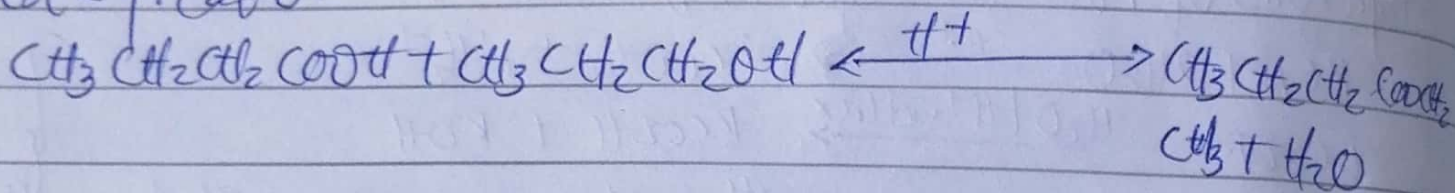 CH₃CH₂CH₂COOH + CH₃CH₂CH₂OH ⟷ H⁺ CH₃CH₂CH₂COOCH₂
CH₃ + H₂O